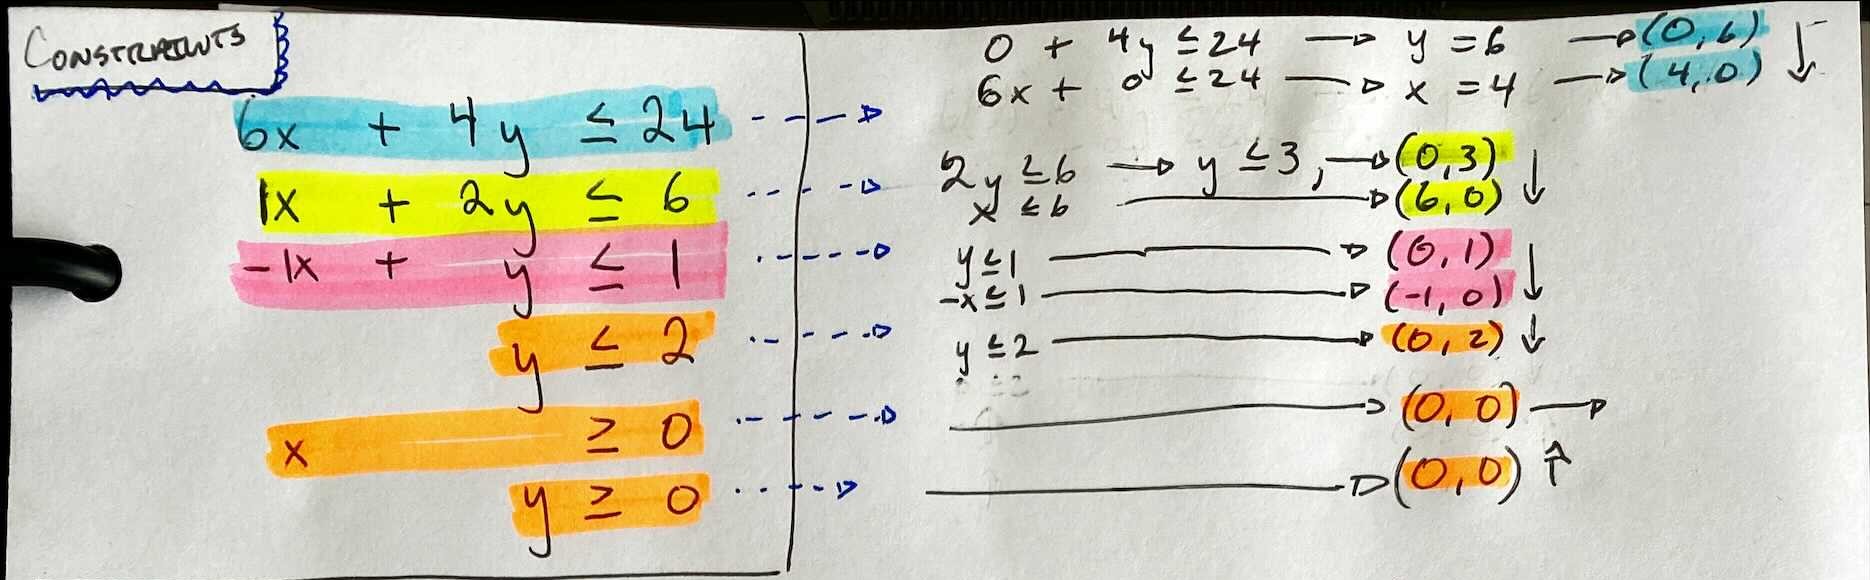 CONSTRAINTS
6x + 4y ≤ 24
1x + 2y ≤ 6
-1x + y ≤ 1
y ≤ 2
x ≥ 0
y ≥ 0
0 + 4y ≤ 24 → y = 6 → (0, 6) ↓
6x + 0 ≤ 24 → x = 4 → (4, 0)
2y ≤ 6 → y ≤ 3, → (0, 3) ↓
x ≤ 6 → (6, 0)
y ≤ 1 → (0, 1) ↓
-x ≤ 1 → (-1, 0)
y ≤ 2 → (0, 2) ↓
→ (0, 0) →
→ (0, 0) ↑